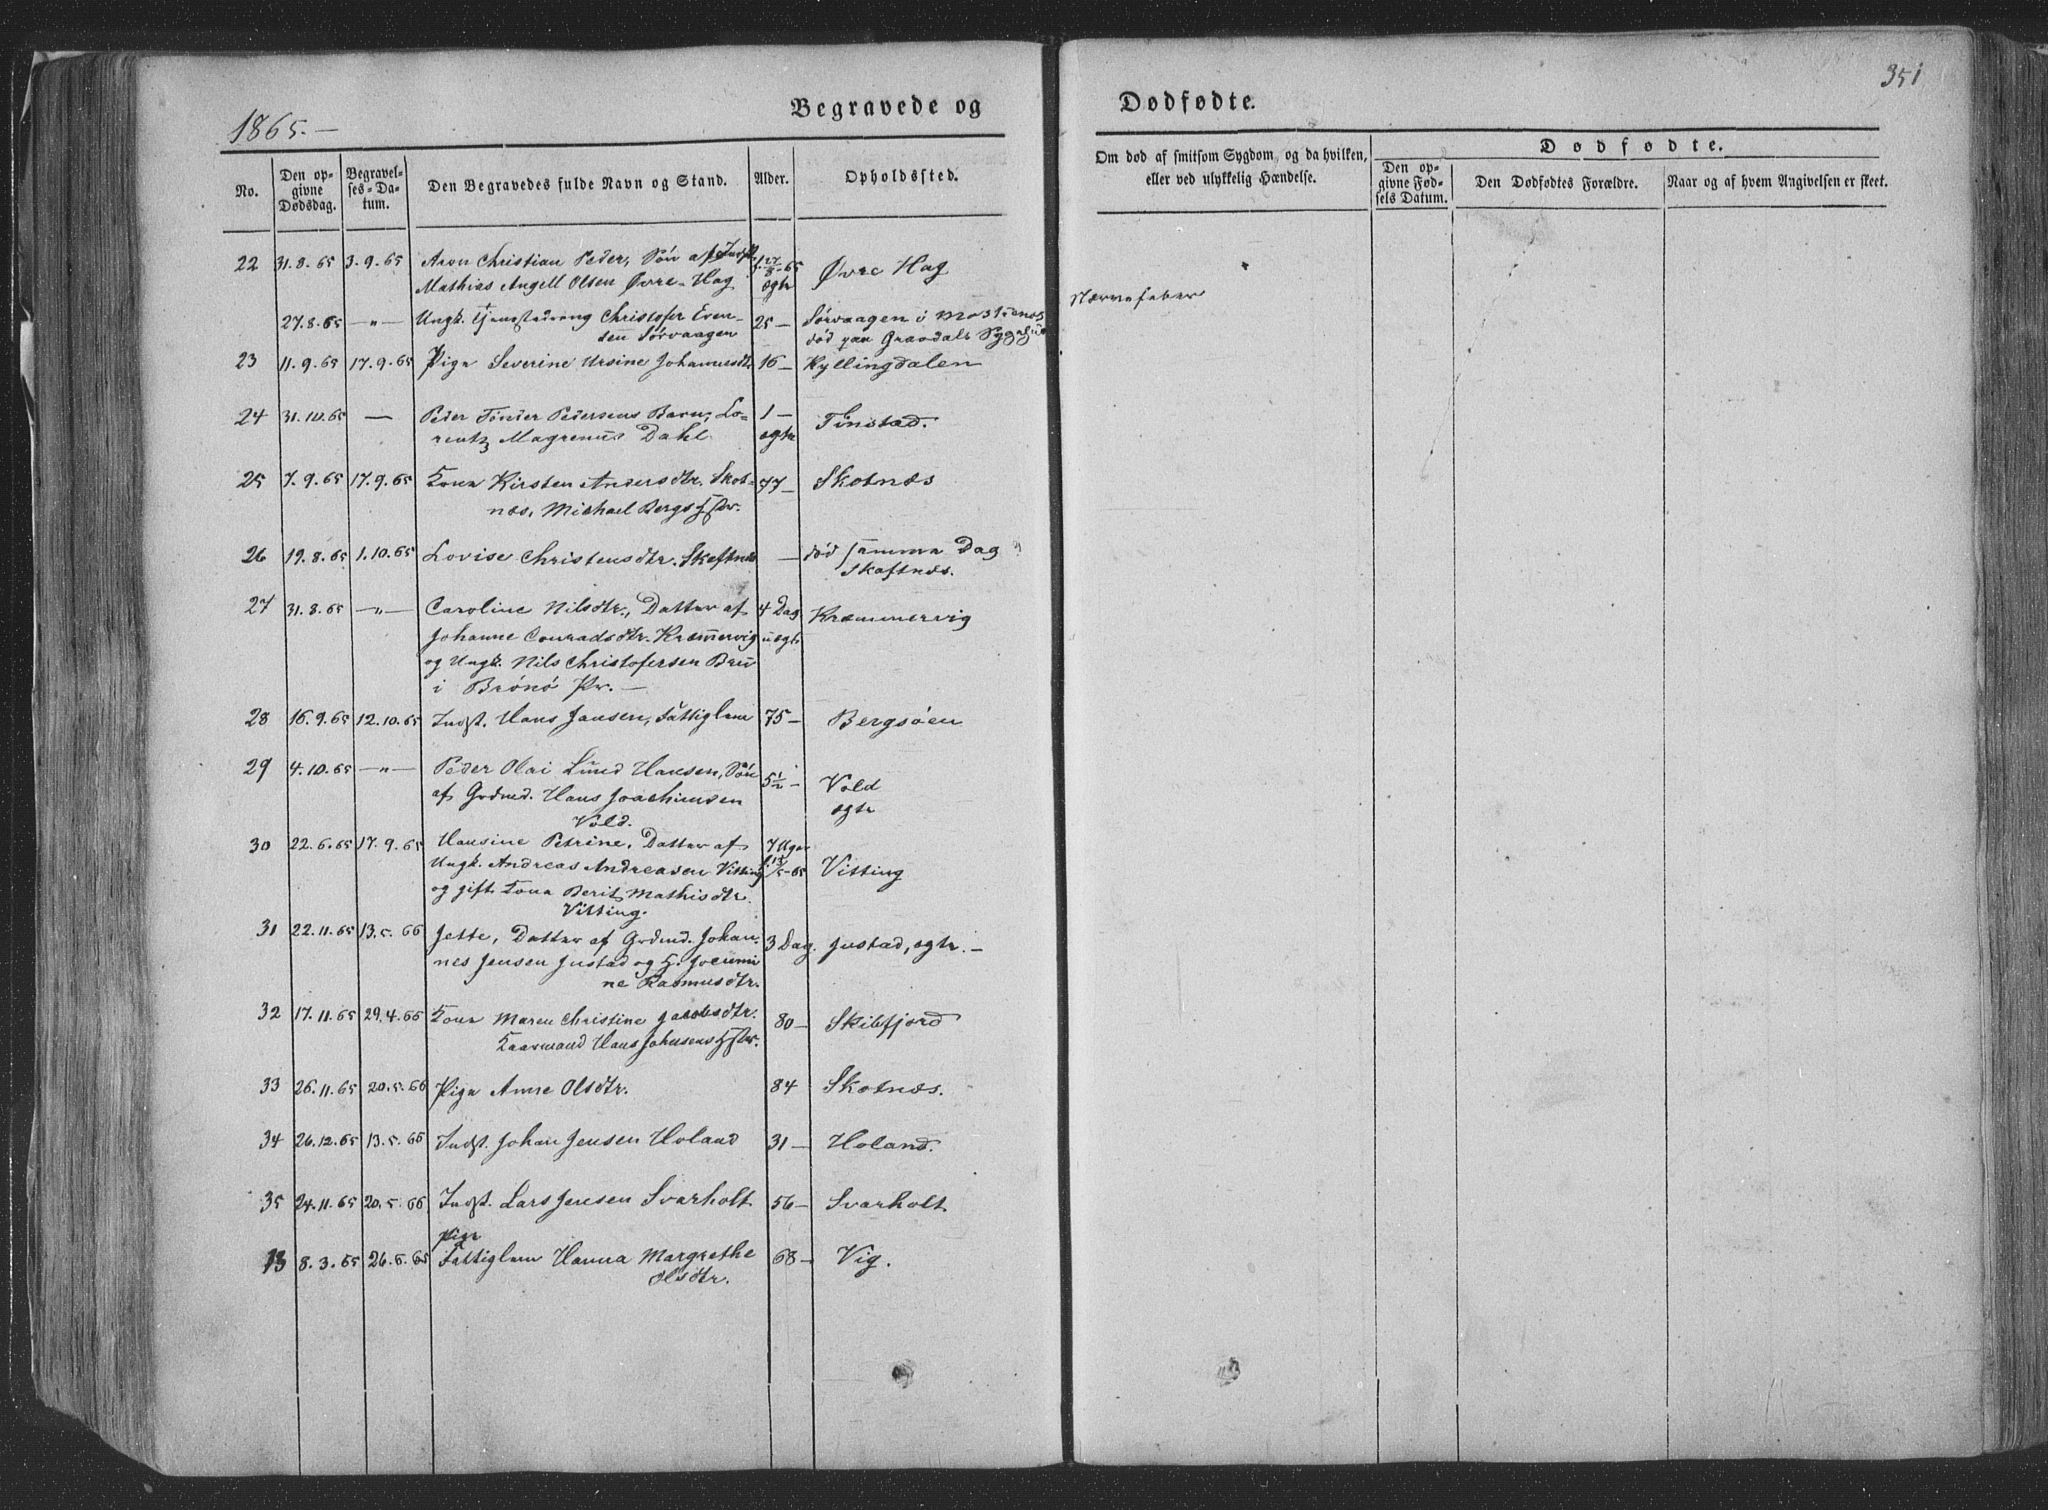 351
1865.-
Begravede og
Dødfødte.
No.
Den op-
givne
Dødsdag.
Begravel-
ses-Da-
tum.
Den Begravedes fulde Navn og Stand.
Alder.
Opholdssted.
Om død af smitsom Sygdom, og da hvilken,
eller ved ulykkelig Hændelse.
Dødfødte.
Den op-
givne Fød-
sels Datum.
Den Dødfødtes Forældre.
Naar og af hvem Angivelsen er skeet.
22 31.8.65 3.9.65 Aron Christian Peder, Søn af Indst.
Mathias Angell Olsen Øvre-Hag ægte Øvre Hag
27.8.65 -"- Ungk. Christofer Even-
sen Sørvaagen 25 - Sørvaagen i Moskenes
død paa Gravdals Sygehus Nervefeber
23 11.9.65 17.9.65 Pige Severine Ursine Johannesdtr. 16 - Kyllingdalen
24 31.10.65 - Peder Tønder Pedersens Barn, Lo-
rentz Magrenus Dahl. 1 - ægte Finstad.
25 7.9.65 17.9.65 Kona Kirsten Andersdtr. Skot-
næs, Michael Bergs Hstr. 77 - Skotnæs
26 19.8.65 1.10.65 Lovise Christensdtr. Skaftnæs - død samme Dag
Skaftnæs.
27 31.8.65 -"- Caroline Nilsdtr., Datter af 4 Dag Kræmmervig
Johanne Conradsdtr. Kræmervig uægte
og Ungk. Nils Christofersen Bru
i Brønø Pr. -
28 16.9.65 12.10.65 Indst. Hans Jansen, Fattiglem 75 - Bergsøen
29 4.10.65 -"- Peder Olai Lund Hansen, Søn 5½ - Vold
af Grdmd. Hans Joachimsen ægte
Vold.
30 22.6.65 17.9.65 Hansine Petrine, Datter af 7 Uger
Ungk. Andreas Andreasen Vitting Vitting
og gift Kona Berit Mathisdtr.
Vitting.
31 22.11.65 13.5.66 Jette, Datter af Grdmd. Johan- 3 Dag. Justad, ægte. -
nes Jensen Justad og H. Jocumi
ne Rasmusdtr.
32 17.11.65 29.4.66 Kona Maren Christine Jacobsdtr. 80 - Skibfjord
Kaarmand Hans Johnsens Hstr.
33 26.11.65 20.5.66 Pige Anne Olsdtr. 84 Skotnæs.
34 26.12.65 13.5.66 Indst. Johan Jensen Holand 31 - Holand.
35 24.11.65 20.5.66 Indst. Lars Jensen Svarholt 56 - Svarholt
Pige
13 8.3.65 26.6.65 Fattiglem Hanna Margrethe 68 - Vig.
Olsdtr.